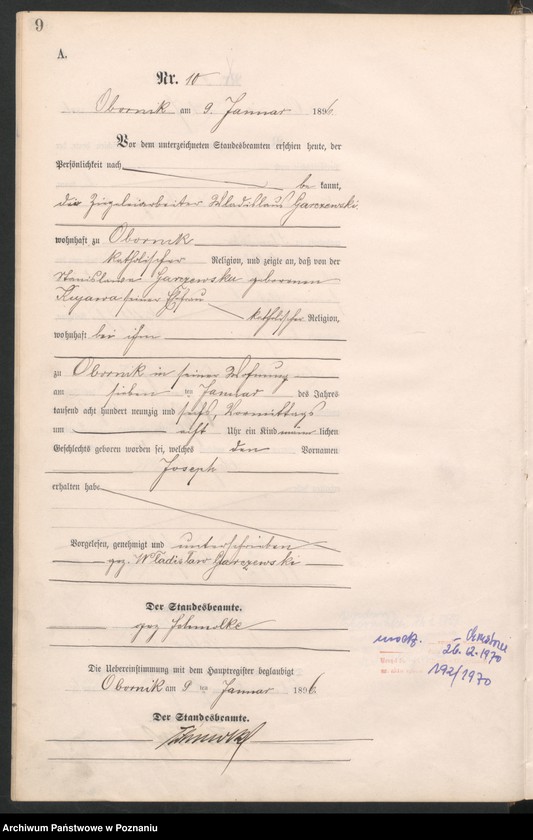 9
A.
Nr. 10
Obornik am 9. Januar 1896
Vor dem unterzeichneten Standesbeamten erschien heute, der
Persönlichkeit nach
be kannt,
der Ziegeleiarbeiter Wladislaus Garczewski
wohnhaft zu Obornik
katholischer Religion, und zeigte an, daß von der
Stanislawa Garczewska geborenen
Kujawa seiner Ehefrau
katholischer Religion,
wohnhaft bei ihm
zu Obornik in seiner Wohnung
am sieben ten Januar des Jahres
tausend acht hundert neunzig und sechs, Vormittags
um acht Uhr ein Kind männ lichen
Geschlechts geboren worden sei, welches den Vornamen
Joseph
erhalten habe
Vorgelesen, genehmigt und unterschrieben
gez. Wladislaw Garczewski
Der Standesbeamte.
gez Schmolke
Die Uebereinstimmung mit dem Hauptregister beglaubigt
Obornik am 9 ten Januar 1896.
Der Standesbeamte.
Schmolke
26.12.1970
192/1970
Archiwum Państwowe w Poznaniu